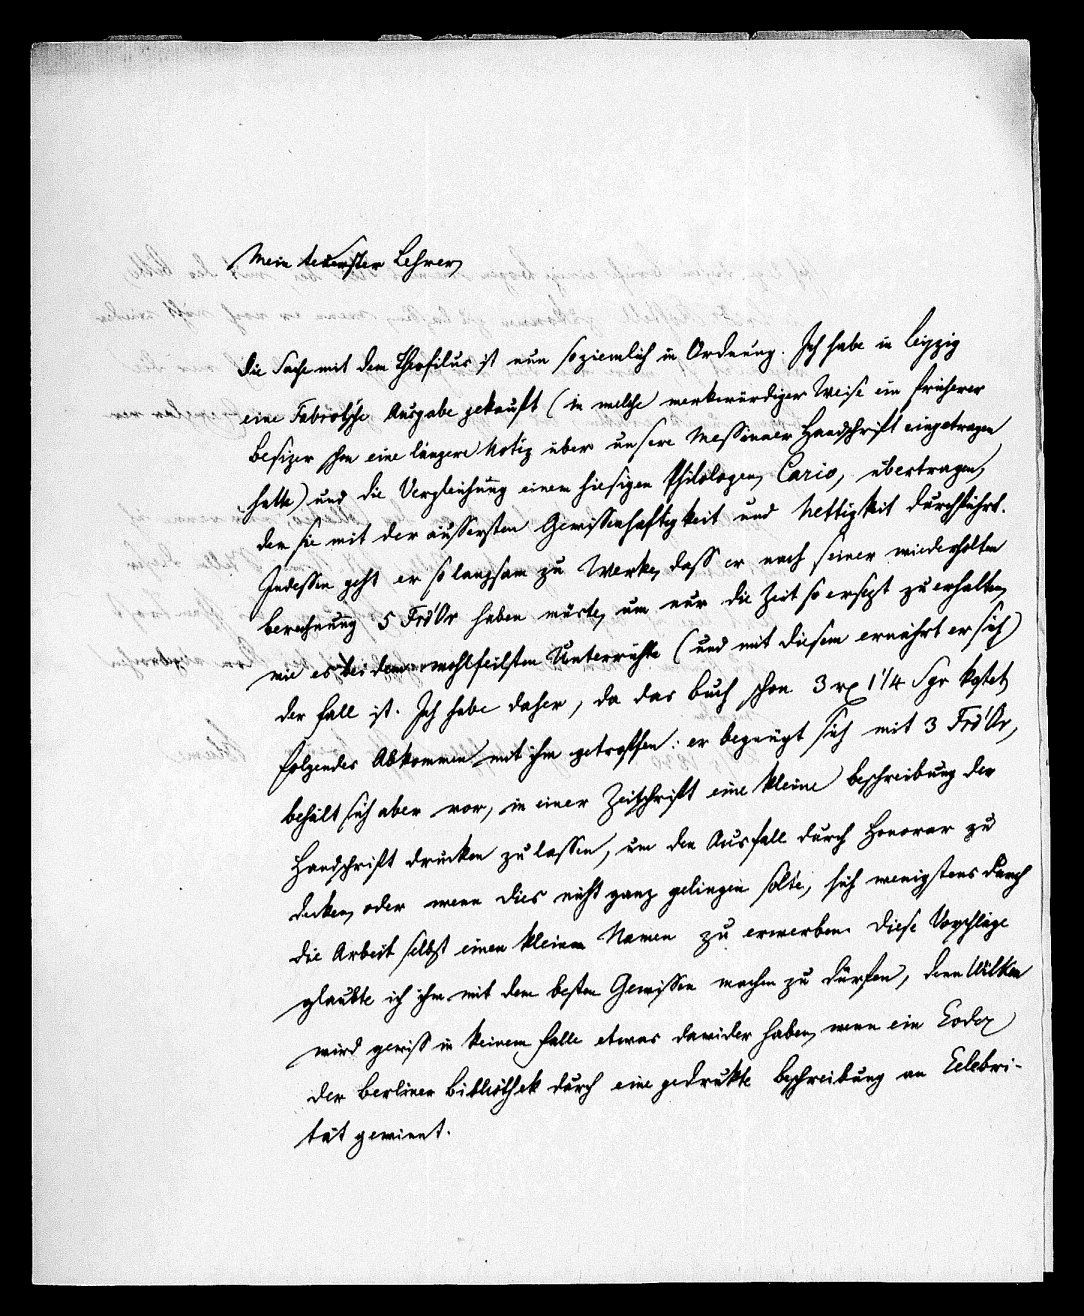 Mein teuerster Lehrer,
die Sache mit dem Theofilus ist nun so ziemlich in Ordnung. Ich habe in Leipzig
eine Fabrotsche Ausgabe gekauft (in welche merkwürdiger Weise ein früherer
Besizer schon eine längere Notiz über unsere Messinaer Handschrift eingetragen
hatte) und die Vergleichung einem hiesigen Philologen, Cario, übertragen,
der sie mit der äussersten Gewissenhaftigkeit und Nettigkeit durchführt.
Indessen geht er so langsam zu Werke, dass er nach seiner wiederholten
Berechnung 5 Frd'Or haben müste, um nur die Zeit so ersezt zu erhalten,
wie es bei dem wohlfeilsten Unterrichte (und mit diesem ernährt er sich)
der Fall ist. Ich habe daher, da das Buch schon 3 rx 1 1/4 Sgr kostet,
folgendes Abkommen mit ihm getroffen: er begnügt sich mit 3 Frd'Or,
behält sich aber vor, in einer Zeitschrift eine kleine Beschreibung der
Handschrift drucken zu lassen, um den Ausfall durch Honorar zu
decken, oder wenn dies nicht ganz gelingen solte, sich wenigstens durch
die Arbeit selbst einen kleinen Namen zu erwerben. Diese Vorschläge
glaubte ich ihm mit dem besten Gewissen machen zu dürfen, denn Wilken
wird gewiss in keinem Falle etwas dawider haben, wenn ein Codex
der Berliner Bibliothek durch eine gedrukte Beschreibung an Celebri-
tät gewinnt.